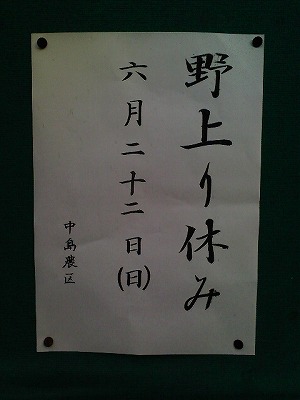 野上り休み
六月二十二日(日)
中島農区